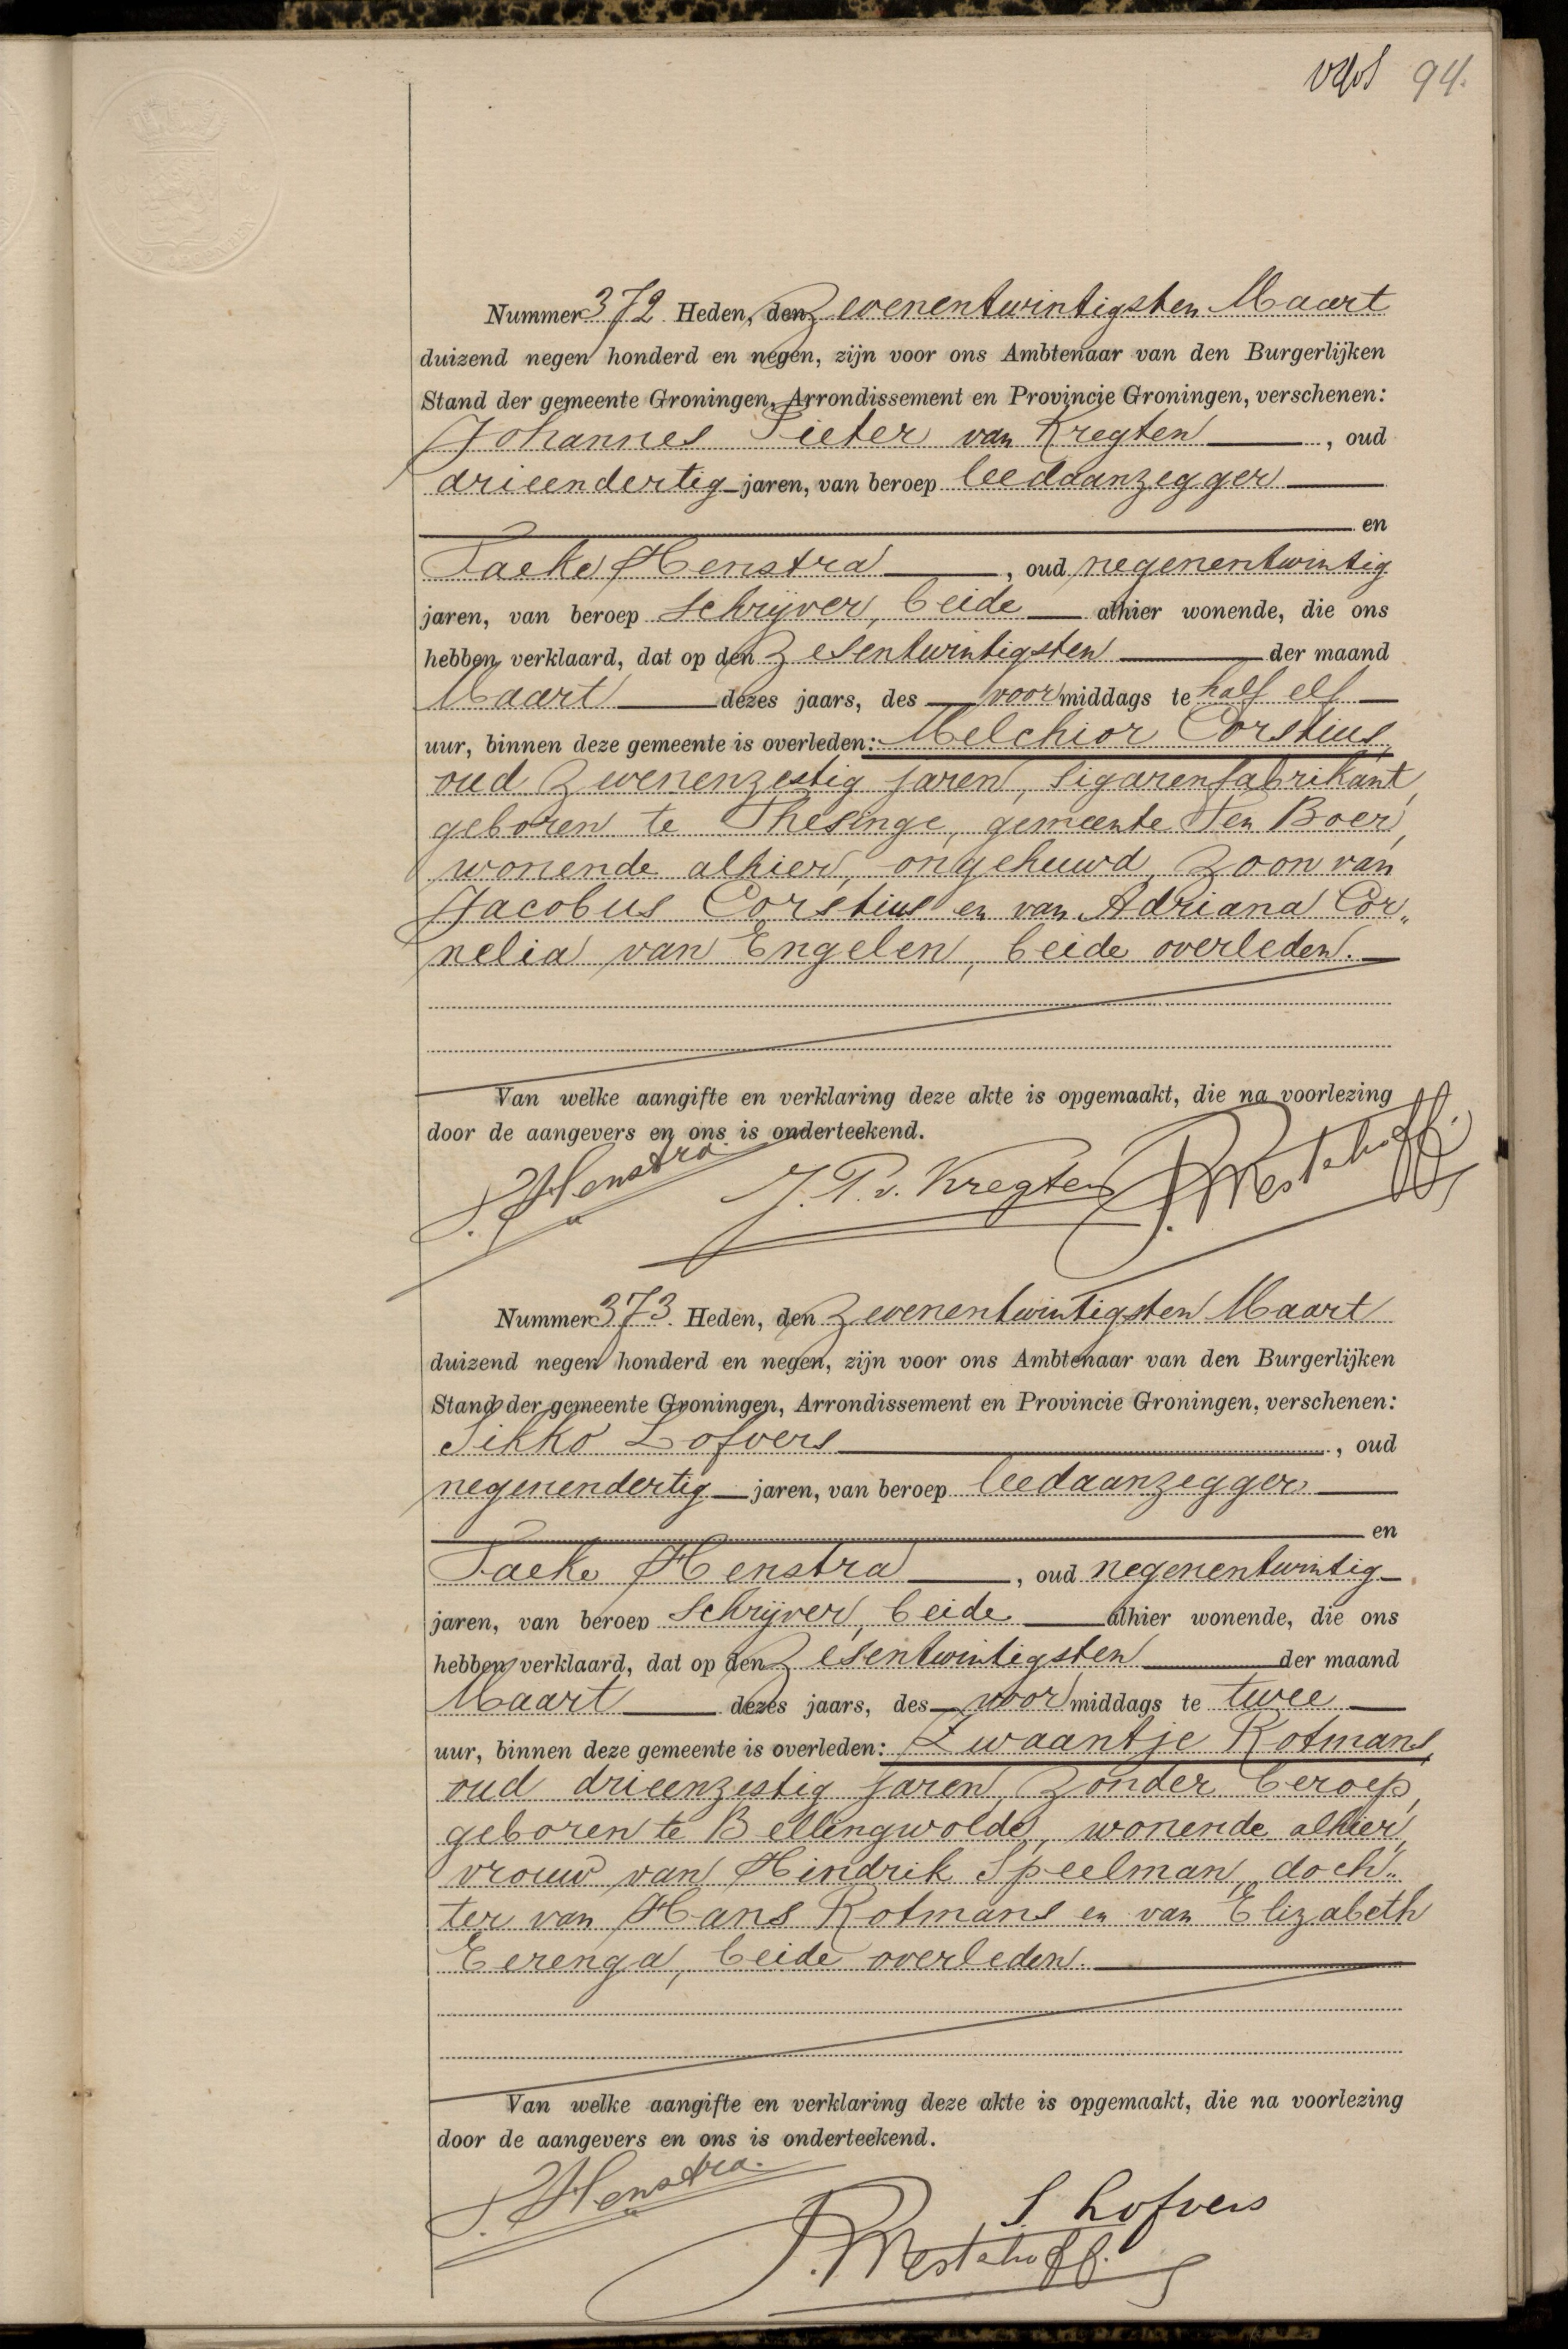 94.
Nummer 372. Heden, den zevenentwintigsten Maart
duizend negen honderd en negen, zijn voor ons Ambtenaar van den Burgerlijken
Stand der gemeente Groningen, Arrondissement en Provincie Groningen, verschenen:
Johannes Pieter van Kregten, oud
drieendertig jaren, van beroep leedaanzegger
en
Taeke Henstra, oud negenentwintig
jaren, van beroep schrijver, beide alhier wonende, die ons
hebben verklaard, dat op den zesentwintigsten der maand
Maart dezes jaars, des voormiddags te half elf
uur, binnen deze gemeente is overleden: Melchior Corstius,
oud zevenenzestig jaren, sigarenfabrikant,
geboren te Thesinge, gemeente Ten Boer,
wonende alhier, ongehuwd, zoon van
Jacobus Corstius en van Adriana Cor„
nelia van Engelen, beide overleden.
Van welke aangifte en verklaring deze akte is opgemaakt, die na voorlezing
door de aangevers en ons is onderteekend.
T. Henstra. J. P. v. Kregten P. Westehoff.
Nummer 373. Heden, den zevenentwintigsten Maart
duizend negen honderd en negen, zijn voor ons Ambtenaar van den Burgerlijken
Stand der gemeente Groningen, Arrondissement en Provincie Groningen, verschenen:
Sikko Lofvers, oud
negenendertig jaren, van beroep leedaanzegger
en
Taeke Henstra, oud negenentwintig
jaren, van beroep schrijver, beide alhier wonende, die ons
hebben verklaard, dat op den zesentwintigsten der maand
Maart dezes jaars, des voormiddags te twee
uur, binnen deze gemeente is overleden: Zwaantje Kotmans,
oud drieenzestig jaren, zonder beroep,
geboren te Bellingwolde, wonende alhier,
vrouw van Hindrik Speelman, doch„
ter van Hans Kotmans en van Elizabeth
Eerenga, beide overleden.
Van welke aangifte en verklaring deze akte is opgemaakt, die na voorlezing
door de aangevers en ons is onderteekend.
T. Henstra. S. Lofvers
P. Westehoff.